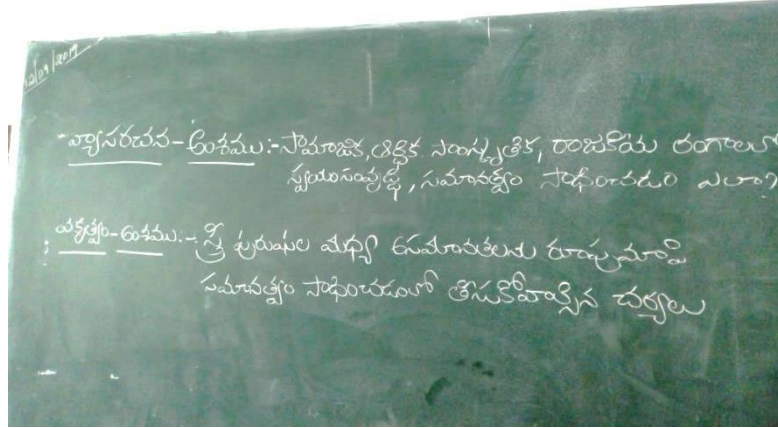 12/09/2019
వ్యాసరచన - అంశము :- సామాజిక, ఆర్ధిక సాంస్కృతిక, రాజకీయ రంగాలలో
స్వయంసమృద్ధి, సమానత్వం సాధించడం ఎలా?
వక్తృత్వం - అంశము :- స్త్రీ పురుషుల మధ్య అసమానతలను రూపుమాపి
సమానత్వం సాధించడంలో తీసుకోవాల్సిన చర్యలు